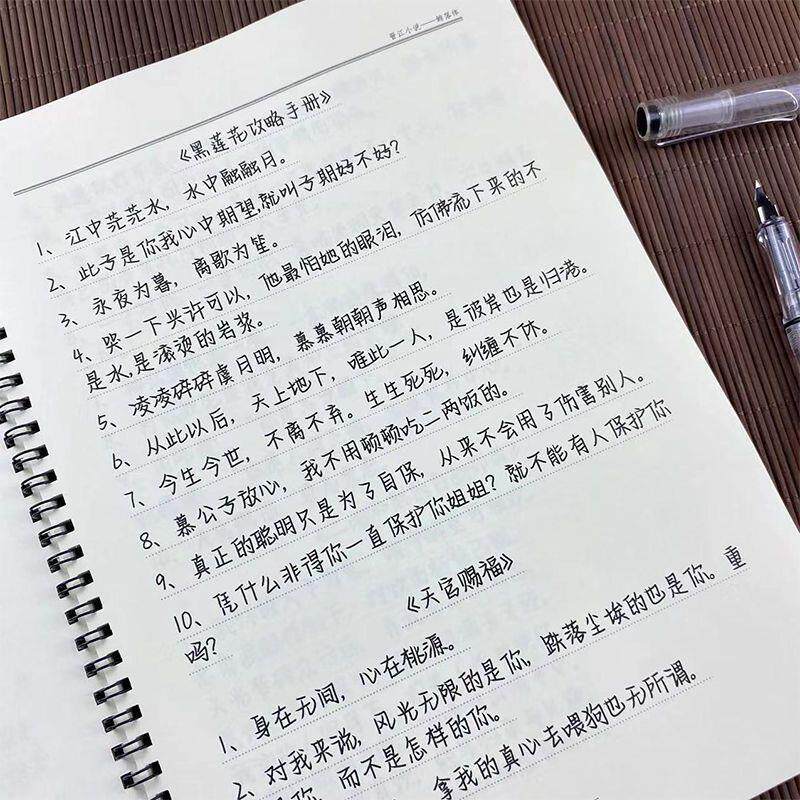 晋江小说——鲸落体
《黑莲花攻略手册》
1、江中茫茫水，水中融融月。
2、此子是你我心中期望,就叫子期好不好？
3、永夜为暮，离歌为笙。
4、哭一下兴许可以，他最怕她的眼泪，仿佛流下来的不
是水,是滚烫的岩浆。
5、凌凌碎碎虞月明，慕慕朝朝声相思。
6、从此以后，天上地下，唯此一人，是彼岸也是归港。
7、今生今世，不离不弃。生生死死，纠缠不休。
8、慕公子放心，我不用顿顿吃二两饭的。
9、真正的聪明只是为了自保，从来不会用了伤害别人。
10、凭什么非得你一直保护你姐姐？就不能有人保护你
吗？
《天官赐福》
1、身在无间，心在桃源。
2、对我来说，风光无限的是你，跌落尘埃的也是你。重
你，而不是怎样的你。
拿我的真心去喂狗也无所谓。